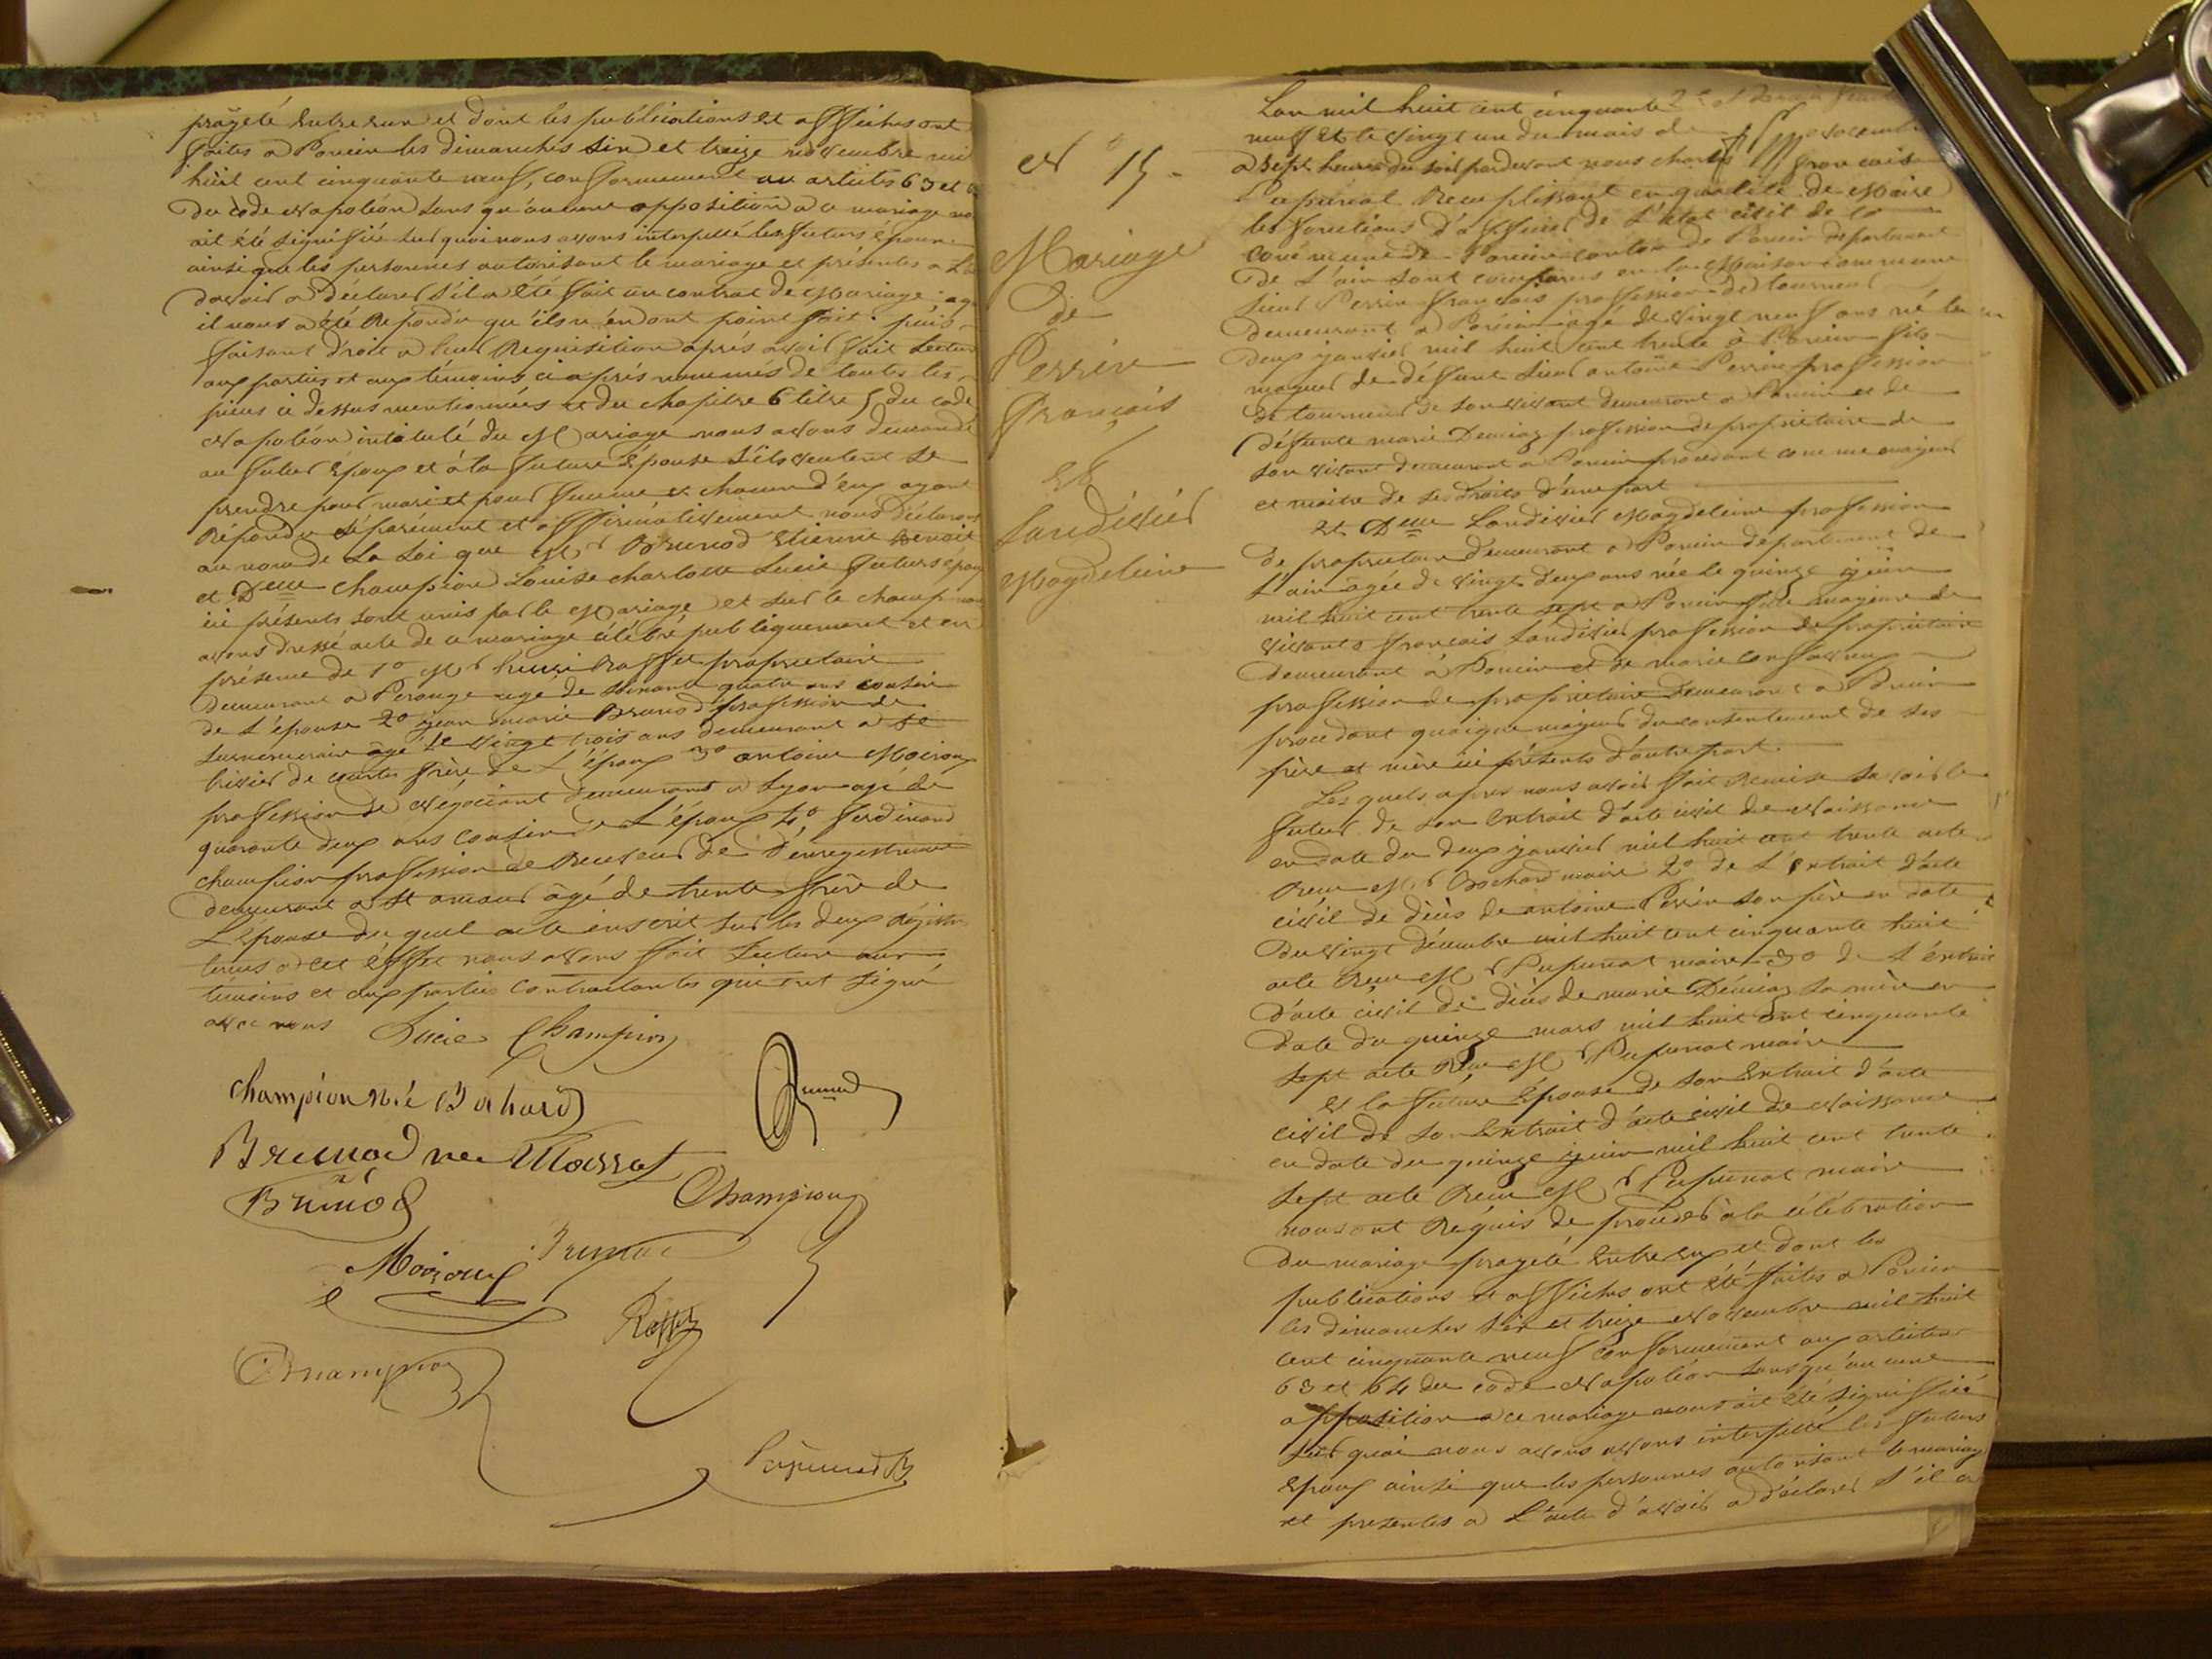 projeté entre eux et dont les publications et affiches ont
faites a Poncin les dimanches six et treize novembre mil
huit cent cinquante neuf, conformement au articles 63 et
du code Napoléon sans qu'aucune opposition a ce mariage
ait été signifiée sur quoi nous avons interpellé les futurs époux
ainsi que les personnes autorisant le mariage et présentes a
d'avoir a déclarer s'il a été fait un contrat de Mariage
il nous a été Repondu qu'ils n'en ont point fait. puis
faisant droit a leur Requisition après avoir fait lecture
aux parties et aux témoins ci après nommés de toutes les
pièces ci dessus mentionnées et du chapitre 6 titre 5 du code
Napoléon intitulé du Mariage nous avons demandé
au futur époux et à la future Epouse s'ils veulent se
prendre pour mari et pour femme et chacun d'eux ayant
Répondu séparément et affirmativement nous déclarons
au nom de la Loi que Mr Brunod Etienne Benoit
et Delle Champion Louise charlotte Lucie futurs époux
ici présents sont unis par le Mariage et sur le champ nous
avons dressé acte de ce mariage célébré publiquement et en
présence de 1° Mr henri Raffet propriétaire
demeurant a Perouge agé de soixante quatre ans cousin
de L'épouse 2° jean marie Brunod profession de
surnumeraire agé de vingt trois ans demeurant a St
trivier de courtes frère de L'époux 3° antoine Moiroux
profession de Négociant demeurant a Lyon agé de
quarante deux ans cousin de L'époux 4° ferdinand
champion profession de Receveur de L'enregistrement
demeurant a St amour âgé de trente frère de
L'épouse du quel acte inscrit sur les deux Régistres
tenus a cet effet nous avons fait Lecture aux
témoins et aux parties Contractantes qui ont signé
avec nous Lucie Champion
Champion née Bochard
Brunod
Brunod née Massot
Brunod
Champion
Moiroux
Brunod
Raffet
Champion
Pupunat
N° 15.
Mariage
De
Perrin
François
Et
Landivier
Magdeleine
Lan mil huit cent cinquante
neuf et le vingt un du mois de novembre
a sept heures du soir pardevant nous charles françois
Pupunat Remplissant en qualité de Maire
les fonctions d'officier de L'état civil de la
commune de Poncin canton de Poncin departement
de L'ain sont comparus en la Maison commune
sieur Perrin françois profession de tourneur
demeurant a Poncin agé de vingt neuf ans né le
deux janvier mil huit cent trente à Poncin fils
majeur de défunt sieur antoine Perrin profession
de tourneur de son vivant demeurant a Poncin et de
défunte marie Démiaz profession de propriétaire de
son vivant demeurant a Poncin procedant comme majeur
et maitre de ses droits d'une part
Et Delle Landivier Magdeleine profession
de propriétaire demeurant a Poncin departement de
L'ain agée de vingt deux ans née le quinze juin
mil huit cent trente sept a Poncin fille majeure de
vivants françois Landivier profession de propriétaire
demeurant à Poncin et de marie
profession de propriétaire demeurant a Poncin
procedant quoique majeur du consentement de ses
père et mère ici présents d'autre part.
Les quels apres nous avoir fait Remise savoir le
futur de son Extrait d'acte civil de Naissance
en date du deux janvier mil huit cent trente acte
Reçu Mr Bochard maire 2° de L'extrait d'acte
civil de décès de antoine Perrin son père en date
du vingt décembre mil huit cent cinquante huit
acte Reçu Mr Pupunat maire 3° de L'extrait
d'acte civil de décès de marie Démiaz sa mère en
date du quinze mars mil huit cent cinquante
sept acte Reçu Mr Pupunat maire
Et la future Epouse de son Extrait d'acte
civil de son Extrait d'acte civil de Naissance
en date du quinze juin mil huit cent trente
sept acte Reçu Mr Pupunat maire
nous ont Requis de procéder à la célébration
du mariage projeté Entre eux et dont les
publications et affiches ont été faites a Poncin
les dimanches six et treize Novembre mil huit
cent cinquante neuf Conformement aux articles
63 et 64 du code Napoléon sans qu'aucune
opposition a ce mariage nous ait été signiffiée
sur quoi nous avons avons interpellé les futurs
Epoux ainsi que les personnes autorisant le mariage
et presentes a L'acte d'avoir a déclarer s'il a